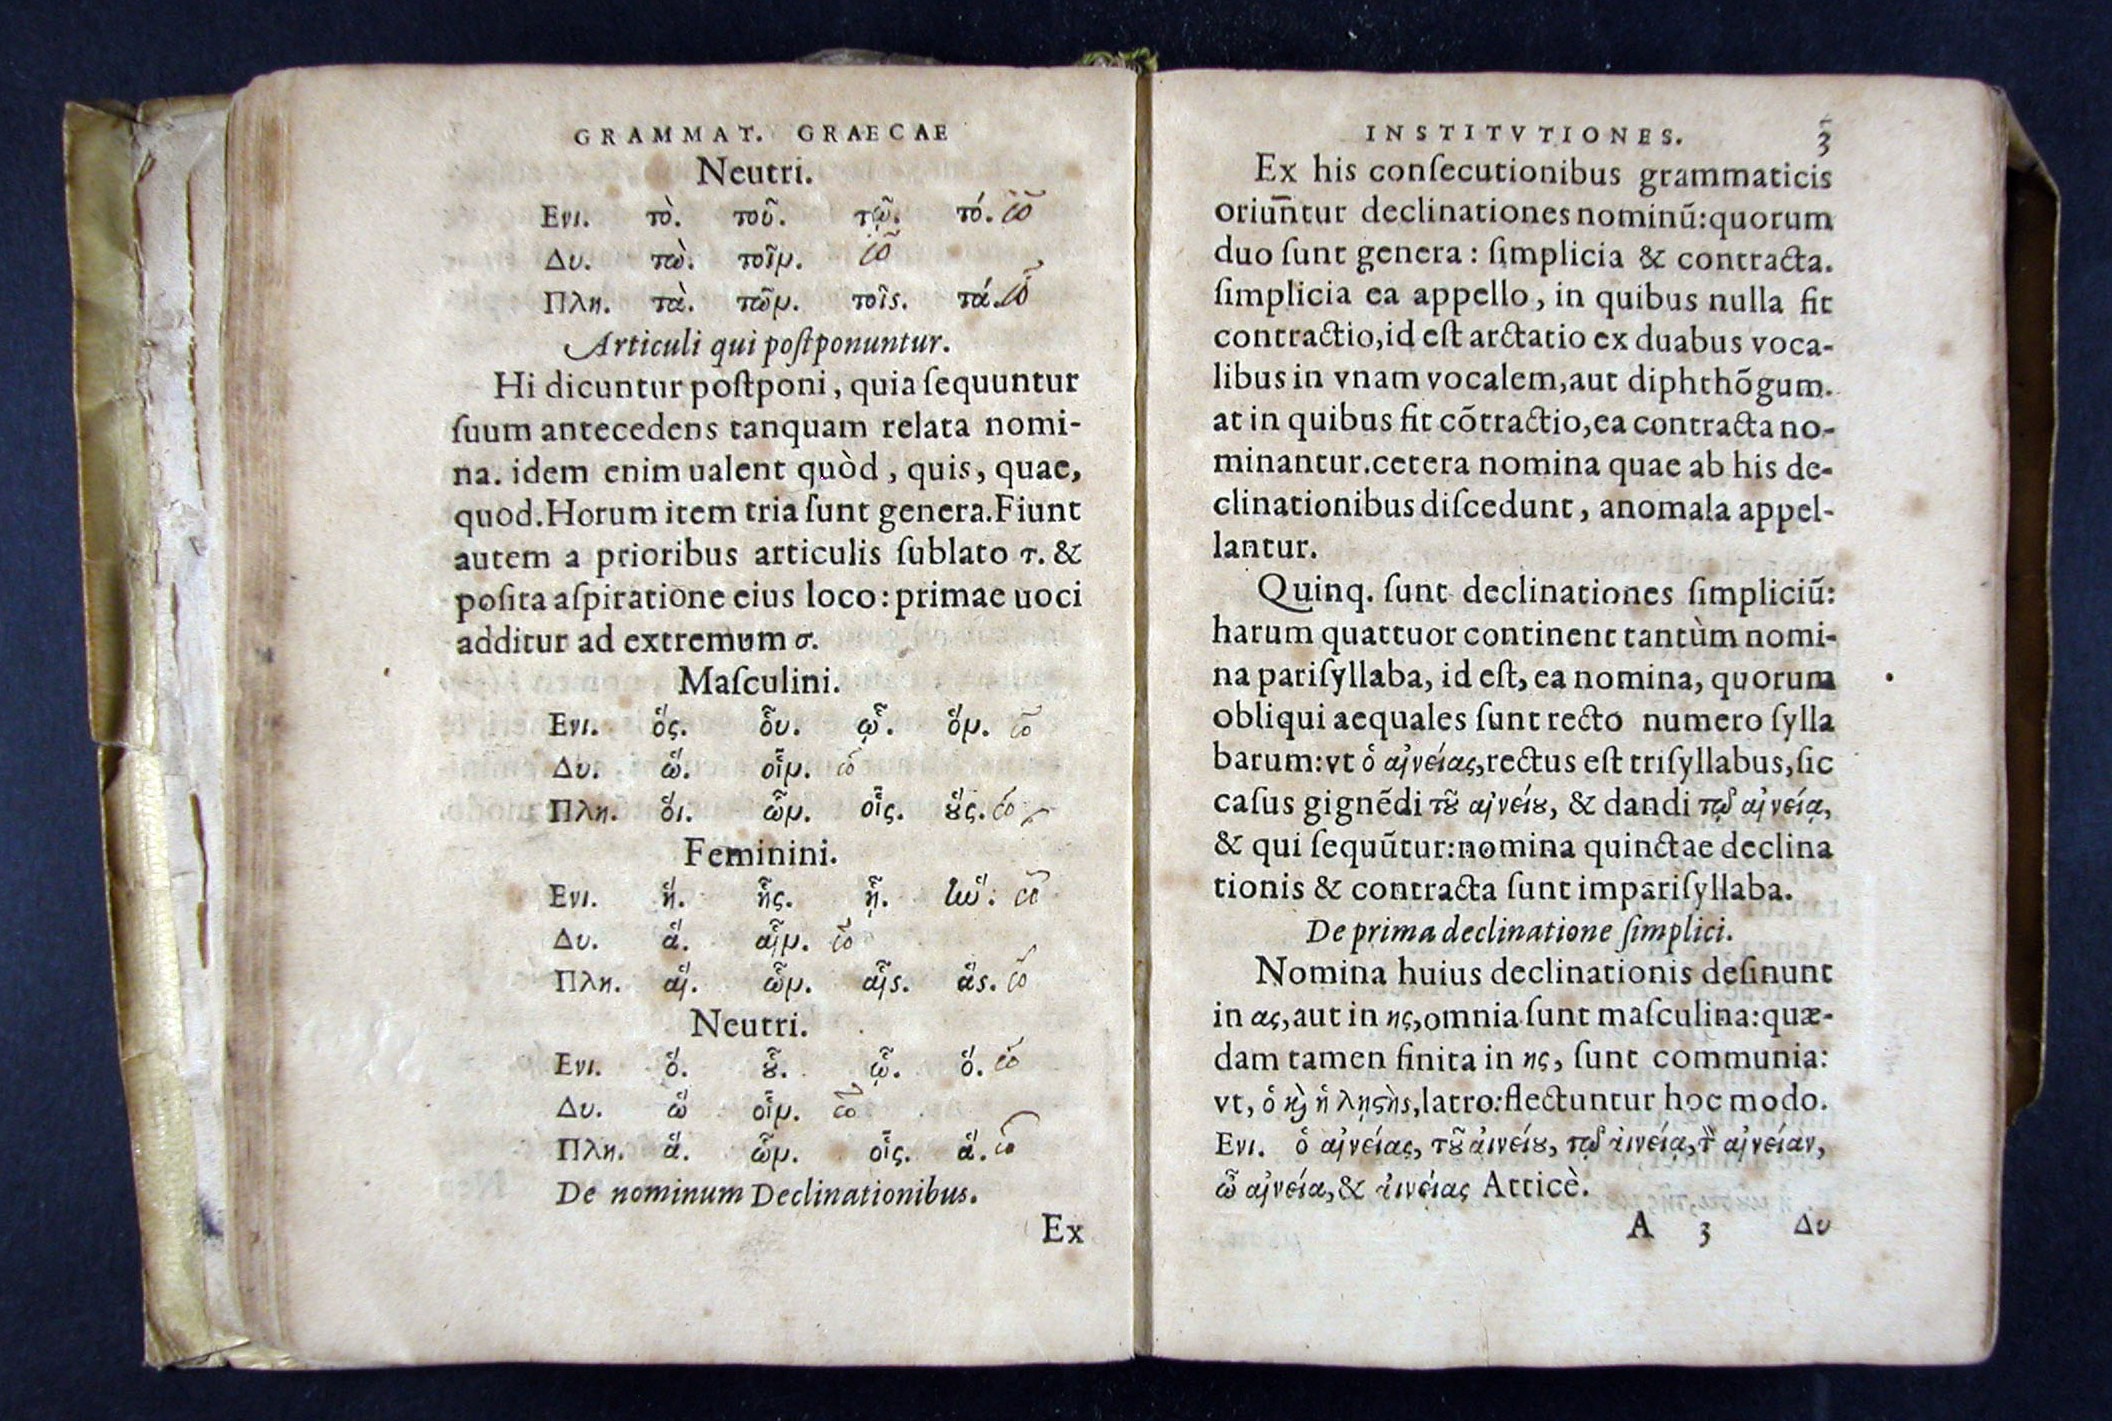 GRAMMAT. GRAECAE
Neutri.
Ενι. τὸ. τοῦ. τῷ. τό. ὦ
Δυ. τὼ. τοῖν. ὦ
Πλη. τὰ. τῶν. τοῖς. τά. ὦ
Articuli qui poſtponuntur.
Hi dicuntur poſtponi, quia ſequuntur
ſuum antecedens tanquam relata nomi-
na. idem enim ualent quòd, quis, quae,
quod. Horum item tria ſunt genera. Fiunt
autem a prioribus articulis ſublato τ. &
poſita aſpiratione eius loco: primae uoci
additur ad extremum σ.
Maſculini.
Ενι. ὅς. οὗ. ᾧ. ὅν. ὦ
Δυ. ὥ. οἷν. ὦ
Πλη. ὅι. ὧν. οἷς. οὕς. ὦ
Feminini.
Ενι. ἥ. ἧς. ᾗ. ἥν. ὦ
Δυ. ἅ. αἷν. ὦ
Πλη. αἵ. ὧν. αἷς. ἅς. ὦ
Neutri.
Ενι. ὅ. οὗ. ᾧ. ὅ. ὦ
Δυ. ὥ οἷν. ὦ
Πλη. ἅ. ὧν. οἷς. ἅ. ὦ
De nominum Declinationibus.
Ex
INSTITVTIONES. 3
Ex his conſecutionibus grammaticis
oriūntur declinationes nominū: quorum
duo ſunt genera: ſimplicia & contracta.
ſimplicia ea appello, in quibus nulla fit
contractio, id eſt arctatio ex duabus voca-
libus in vnam vocalem, aut diphthōgum.
at in quibus fit cōtractio, ea contracta no-
minantur. cetera nomina quae ab his de-
clinationibus diſcedunt, anomala appel-
lantur.
Quinq. ſunt declinationes ſimpliciū:
harum quattuor continent tantùm nomi-
na pariſyllaba, id eſt, ea nomina, quorum
obliqui aequales ſunt recto numero ſylla
barum: vt ὁ αἰνείας, rectus eſt triſyllabus, ſic
caſus gignēdi τοῦ αἰνείου, & dandi τῷ αἰνείᾳ,
& qui ſequūtur: nomina quinctae declina
tionis & contracta ſunt impariſyllaba.
De prima declinatione ſimplici.
Nomina huius declinationis deſinunt
in ας, aut in ης, omnia ſunt maſculina: quæ-
dam tamen finita in ης, ſunt communia:
vt, ὁ καὶ ἡ λῃστὴς, latro: flectuntur hoc modo.
Ενι. ὁ αἰνείας, τοῦ αἰνείου, τῷ αἰνείᾳ, τὸν αἰνείαν,
ὦ αἰνεία, & αἰνείας Atticè.
A 3 Δυ